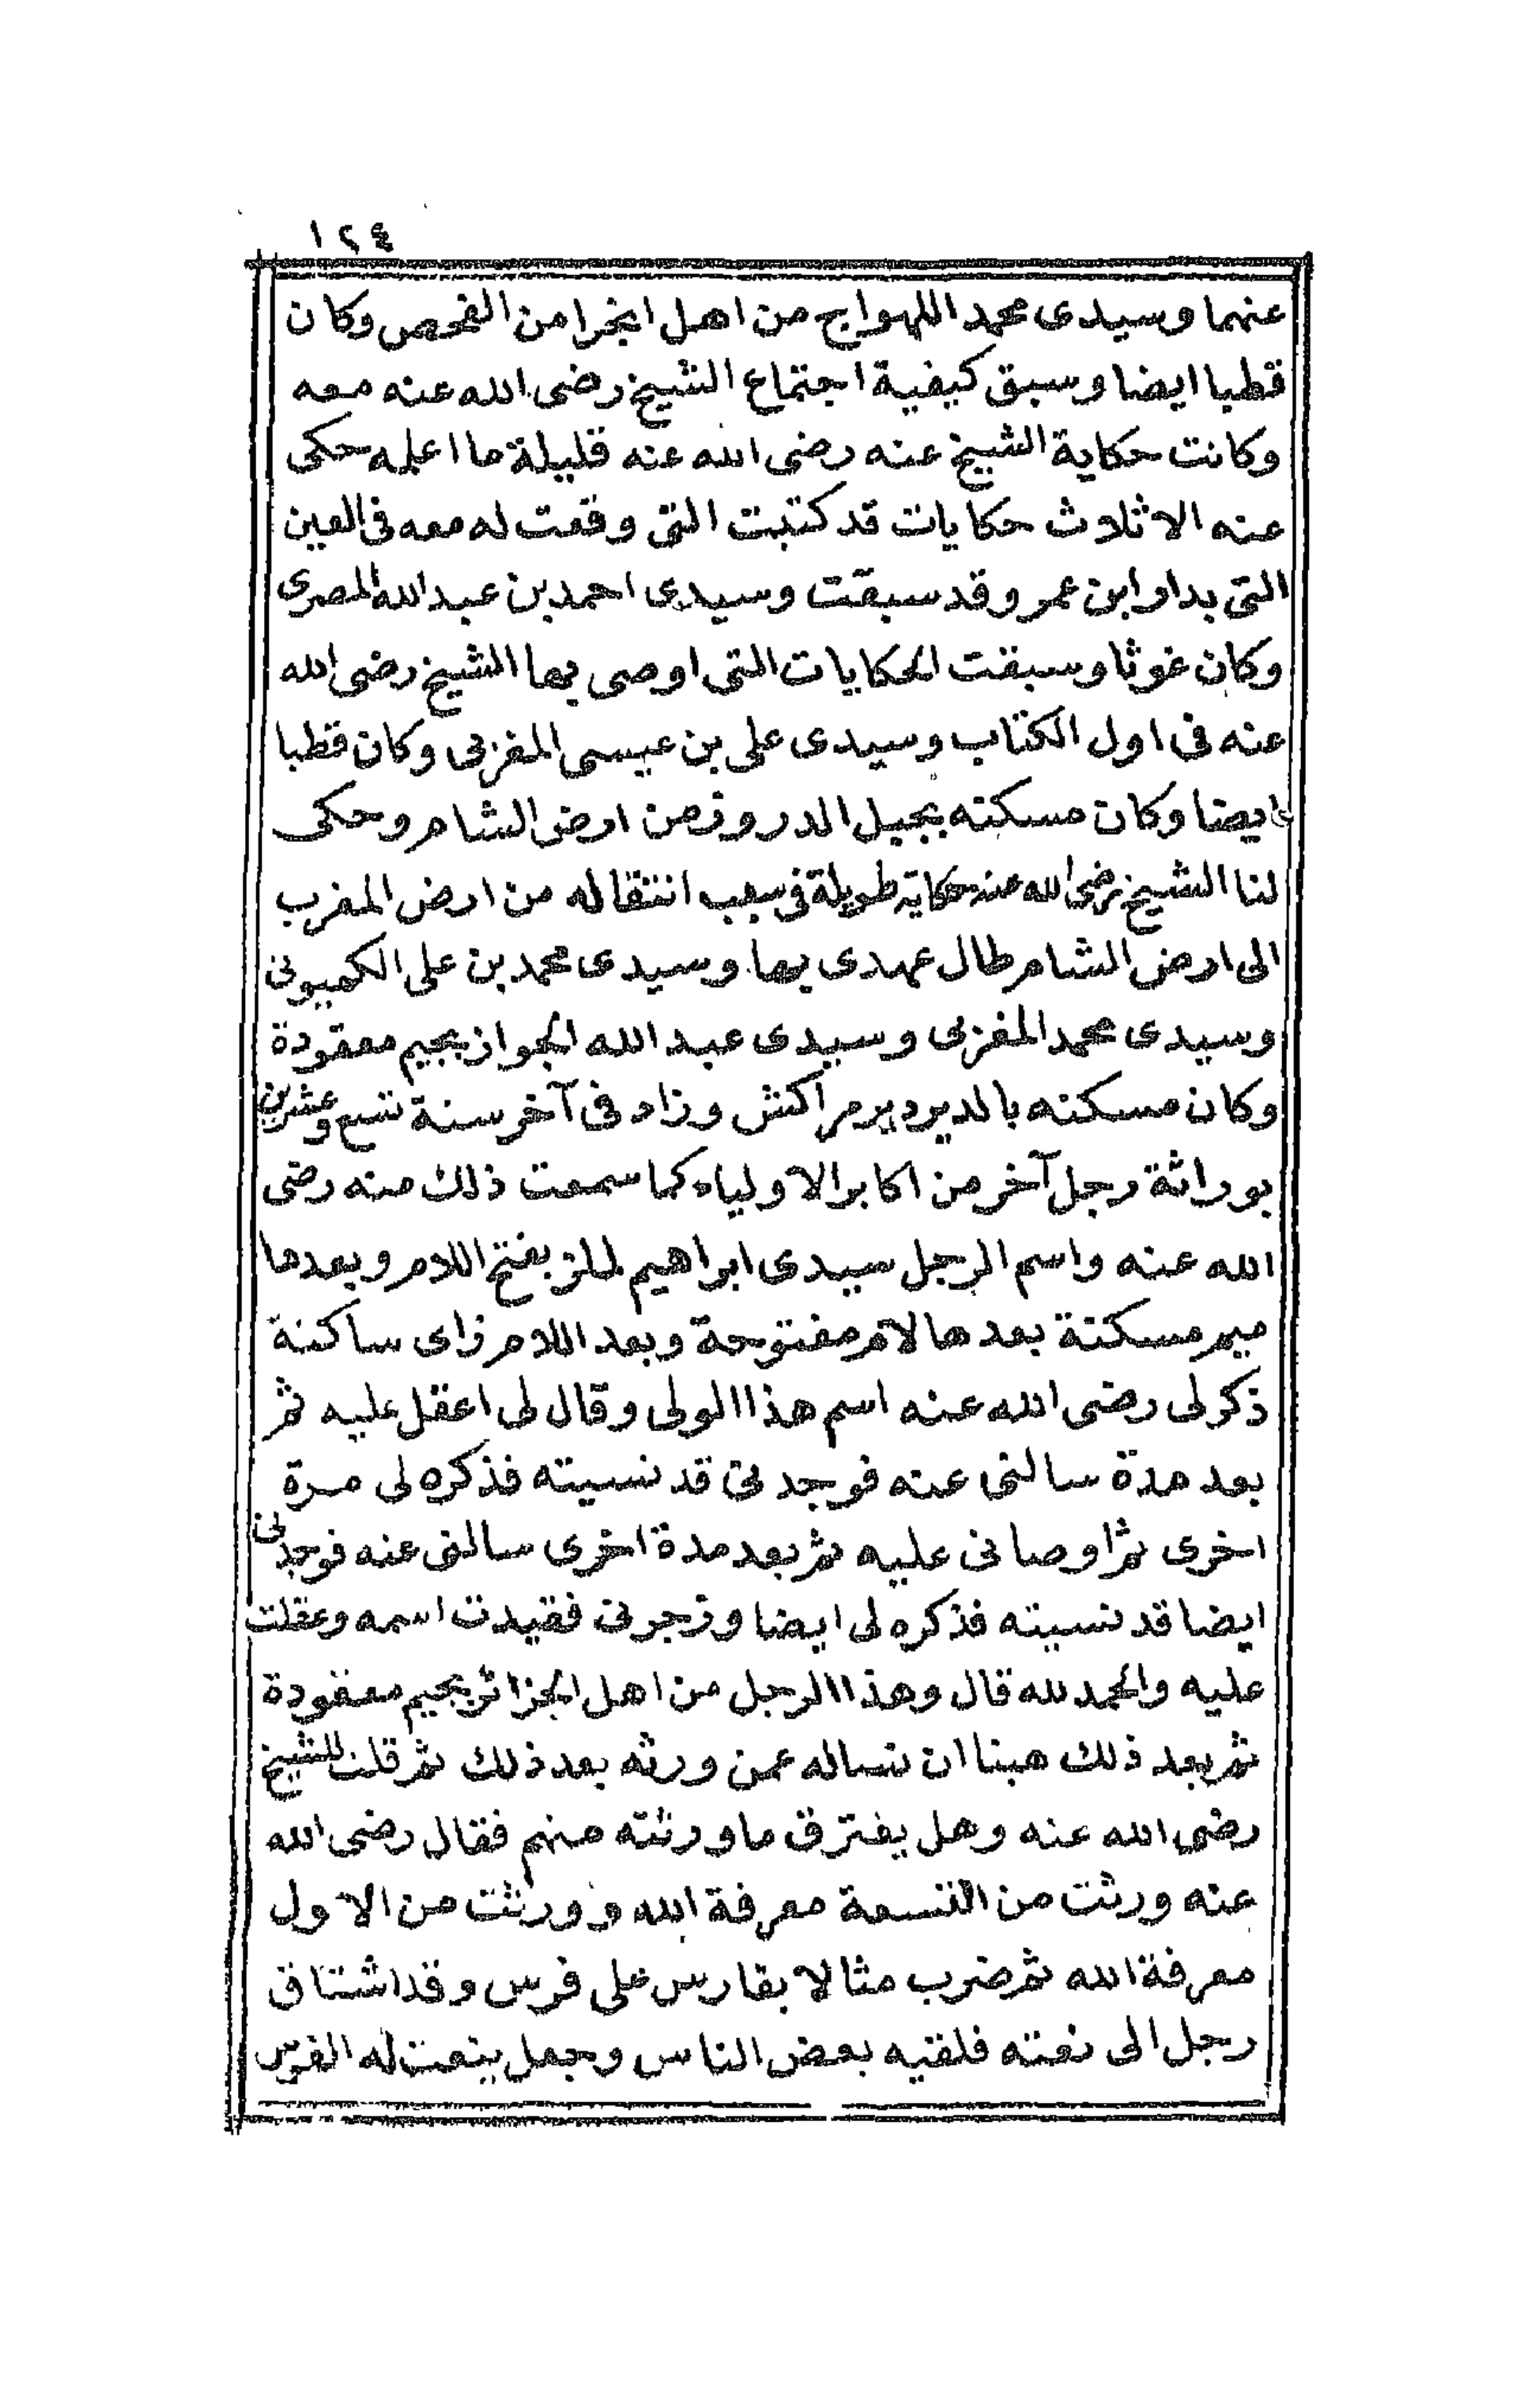 ١٢٤
عنهما وسيدى محمد اللهواج من اهل انجرا من الفحص وكان
قطبا ايضا وسبق كيفية اجتماع الشيخ رضى الله عنه معه
وكانت حكاية الشيخ عنه رضى الله عنه قليلة ما اعلمه حكى
عنه الا ثلاث حكايات قد كتبت التى وقعت له معه فى العين
التى بدار ابن عمر وقد سبقت وسيدى احمد بن عبد الله المصرى
وكان غوثا وسبقت الحكايات التى اوصى بها الشيخ رضى الله
عنه فى اول الكتاب وسيدى على بن عيسى المغربى وكان قطبا
ايضا وكان مسكنه بجبل الدروز من ارض الشام وحكى
لنا الشيخ رضى الله عنه حكاية طويلة فى سبب انتقاله من ارض المغرب
الى ارض الشام طال عهدى بها وسيدى محمد بن على الكميونى
وسيدى محمد المغربى وسيدى عبد الله الجواز بجيم معقودة
وكان مسكنه بالدير دير مراكش وزاد فى آخر سنة تسع وعشرين
بوراثة رجل آخر من اكابر الاولياء كما سمعت ذلك منه رضى
الله عنه واسم الرجل سيدى ابراهيم لملز بفتح اللام وبعدها
ميم مسكنة بعدها لام مفتوحة وبعد اللام زاى ساكنة
ذكر لى رضى الله عنه اسم هذا الولى وقال لى اعقل عليه ثم
بعد مدة سالنى عنه فوجدنى قد نسيته فذكره لى مرة
اخرى ثم اوصانى عليه ثم بعد مدة اخرى سالنى عنه فوجدنى
ايضا قد نسيته فذكره لى ايضا وزجرنى فقيدت اسمه وعقلت
عليه والحمد لله قال وهذا الرجل من اهل الجزائر بجيم معقودة
ثم بعد ذلك هبنا ان نساله عمن ورثه بعد ذلك ثم قلت للشيخ
رضى الله عنه وهل يفترق ما ورثته منهم فقال رضى الله
عنه ورثت من التسعة معرفة الله وورثت من الاول
معرفة الله ثم ضرب مثالا بفارس على فرس وقد اشتاق
رجل الى نعته فلقيه بعض الناس وجعل ينعت له الفرس